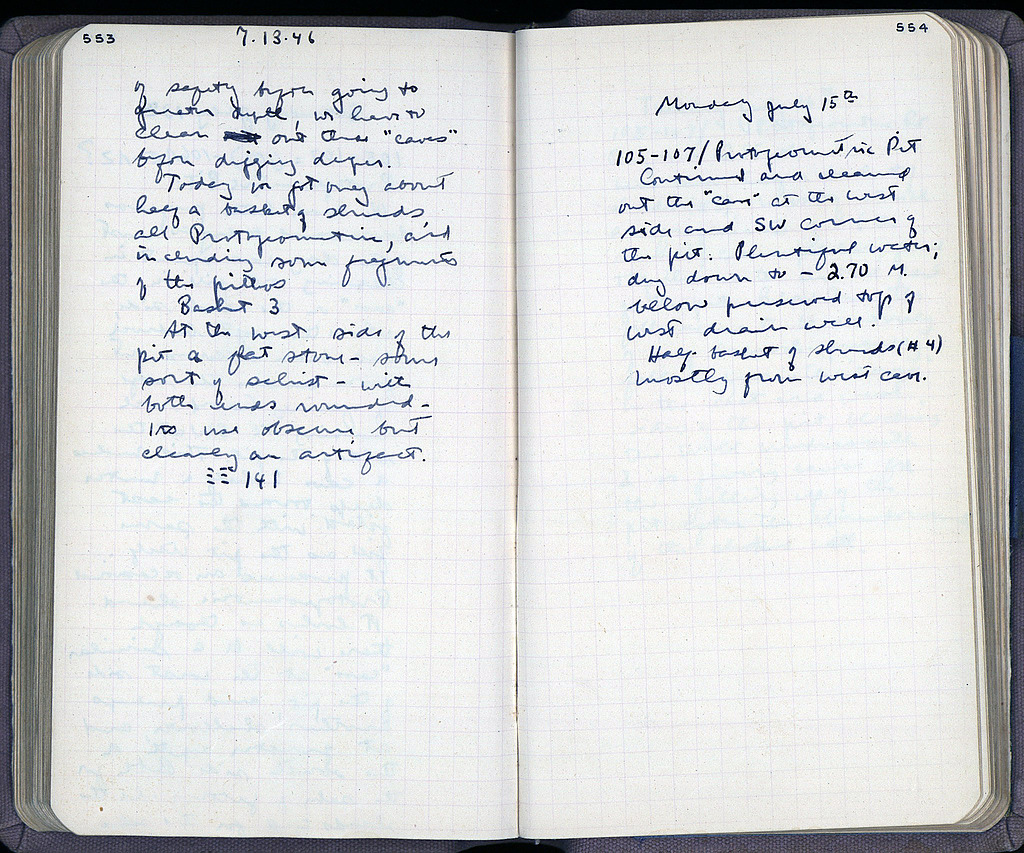 553
7.13.46
of safety before going to
greater depth, we have to
clean out these "caves"
before digging deeper.
Today we got only about
half a basket of sherds,
all Protogeometric, and
including some fragments
of the pithos
Basket 3
At the west side of the
pit a flat stone - some
sort of schist - with
both ends rounded -
Its use obscure but
clearly an artifact.
ΞΞ 141
554
Monday July 15th
105-107/Protogeometric Pit
Continued and cleaned
out the "cave" at the west
side and SW corner of
the pit. Plentiful water;
dug down to - 2.70 M.
below preserved top of
west drain wall.
Half basket of sherds (# 4)
mostly from west cave.